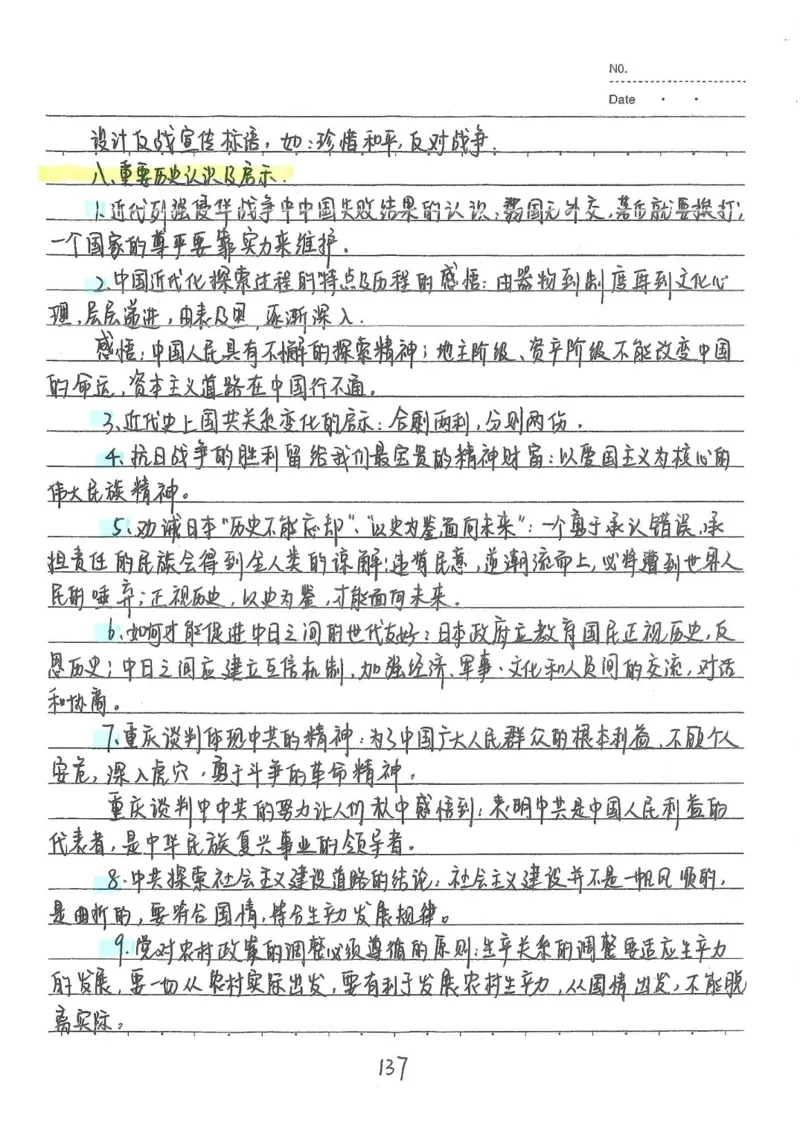 NO.
Date
设计反战宣传标语，如：珍惜和平，反对战争．
八、重要历史认识及启示．
1、近代列强侵华战争中中国失败结果的认识：弱国无外交，落后就要挨打；
一个国家的尊严要靠实力来维护．
2、中国近代化探索过程的特点及历程的感悟：由器物到制度再到文化心
理，层层递进，由表及里，逐渐深入．
感悟：中国人民具有不懈的探索精神；地主阶级、资产阶级不能改变中国
的命运，资本主义道路在中国行不通。
3、近代史上国共关系变化的启示：合则两利，分则两伤．
4、抗日战争的胜利留给我们最宝贵的精神财富：以爱国主义为核心的
伟大民族精神。
5、劝诫日本“历史不能忘却”、“以史为鉴面向未来”：一个勇于承认错误、承
担责任的民族会得到全人类的谅解；违背民意，逆潮流而上，必将遭到世界人
民的唾弃；正视历史，以史为鉴，才能面向未来．
6、如何才能促进中日之间的世代友好：日本政府应教育国民正视历史，反
思历史；中日之间应建立互信机制，加强经济、军事、文化和人员间的交流，对话
和协商。
7、重庆谈判体现中共的精神：为了中国广大人民群众的根本利益，不顾个人
安危，深入虎穴，勇于斗争的革命精神。
重庆谈判中中共的努力让人们从中感悟到：表明中共是中国人民利益的
代表者，是中华民族复兴事业的领导者。
8、中共探索社会主义建设道路的结论：社会主义建设并不是一帆风顺的，
是曲折的，要符合国情，符合生产力发展规律。
9、党对农村政策的调整必须遵循的原则：生产关系的调整要适应生产力
的发展，要一切从农村实际出发，要有利于发展农村生产力，从国情出发，不能脱
离实际。
137